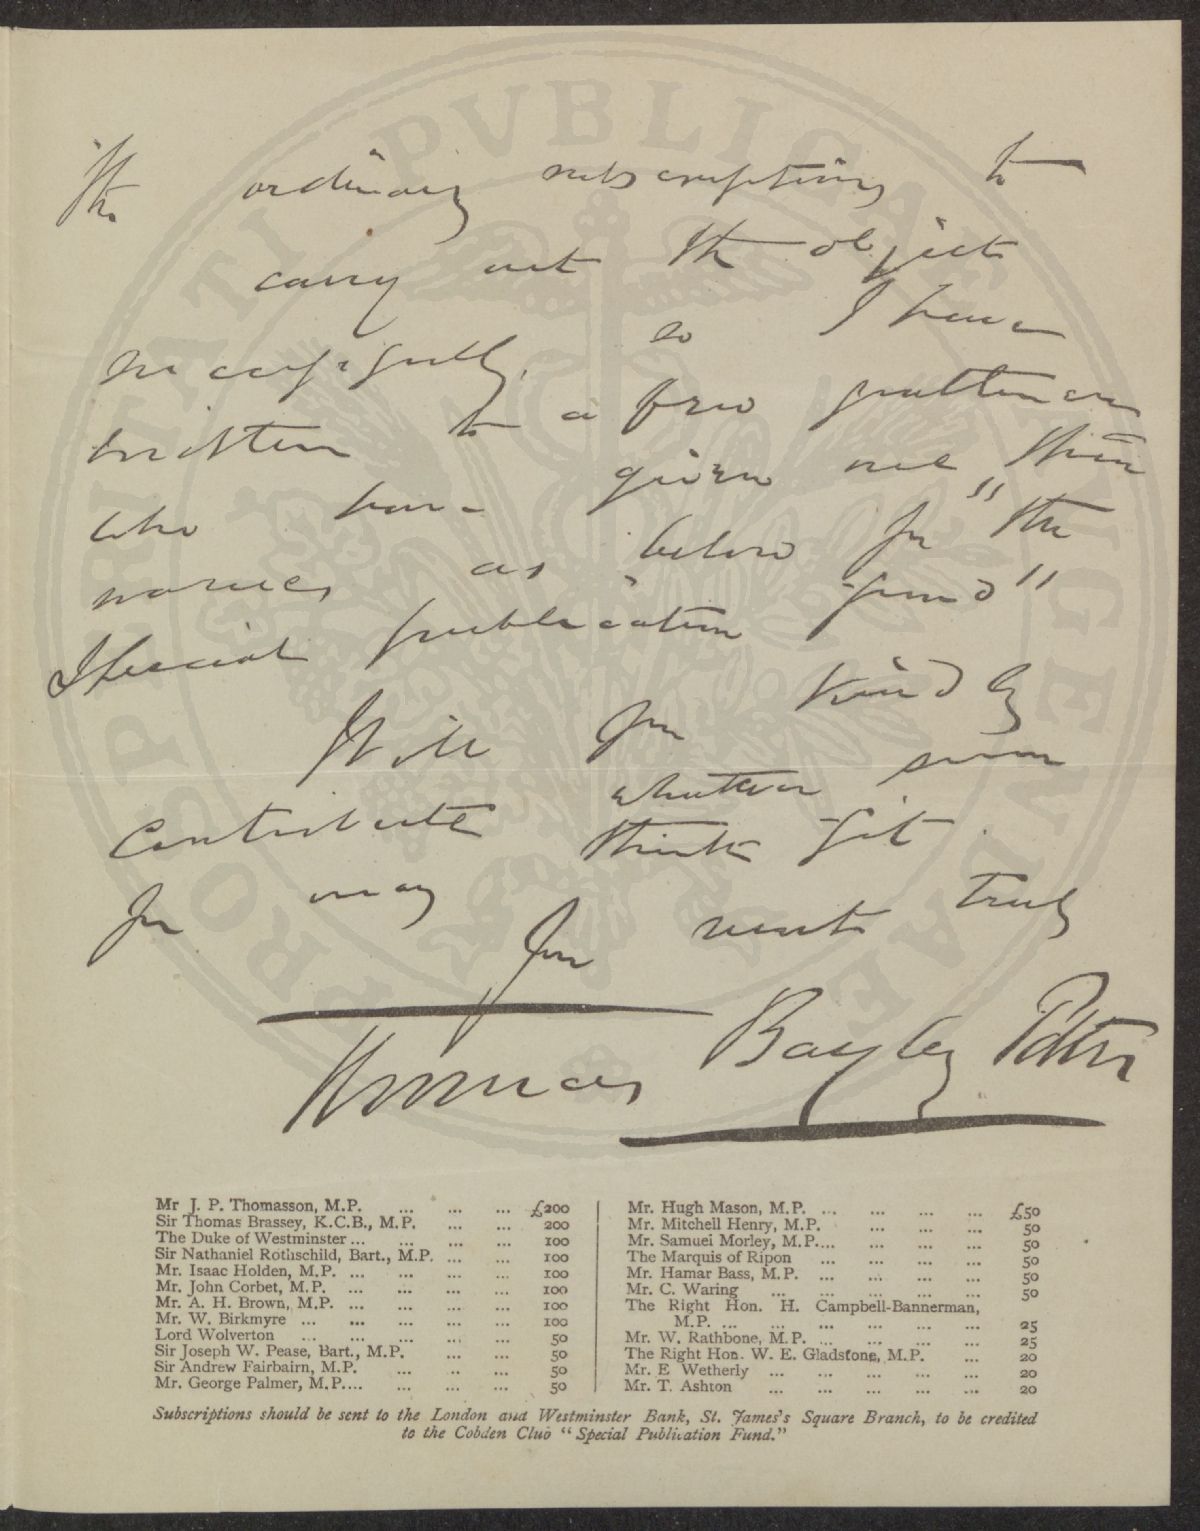 the ordinary subscriptions to
carry out the objects
successfully, so I have
written to a few gentlemen
who have given me their
names as below for "the
Special publication fund"
Will you kindly
contribute whatever sum
you may think fit.
Yrs most truly
Thomas Bayley Potter
Mr J. P. Thomasson, M.P. ... ... ... £200
Sir Thomas Brassey, K.C.B., M.P. ... ... 200
The Duke of Westminster ... ... ... ... 100
Sir Nathaniel Rothschild, Bart., M.P. ... ... 100
Mr. Isaac Holden, M.P. ... ... ... ... 100
Mr. John Corbet, M.P. ... ... ... ... 100
Mr. A. H. Brown, M.P. ... ... ... ... 100
Mr. W. Birkmyre ... ... ... ... ... 100
Lord Wolverton ... ... ... ... ... 50
Sir Joseph W. Pease, Bart., M.P. ... ... 50
Sir Andrew Fairbairn, M.P. ... ... ... 50
Mr. George Palmer, M.P. ... ... ... ... 50
Mr. Hugh Mason, M.P. ... ... ... ... £50
Mr. Mitchell Henry, M.P. ... ... ... 50
Mr. Samuel Morley, M.P. ... ... ... ... 50
The Marquis of Ripon ... ... ... ... 50
Mr. Hamar Bass, M.P. ... ... ... ... 50
Mr. C. Waring ... ... ... ... ... 50
The Right Hon. H. Campbell-Bannerman,
M.P. ... ... ... ... ... ... 25
Mr. W. Rathbone, M.P. ... ... ... ... 25
The Right Hon. W. E. Gladstone, M.P. ... 20
Mr. E Wetherly ... ... ... ... ... 20
Mr. T. Ashton ... ... ... ... ... 20
Subscriptions should be sent to the London and Westminster Bank, St. James's Square Branch, to be credited
to the Cobden Club "Special Publication Fund."